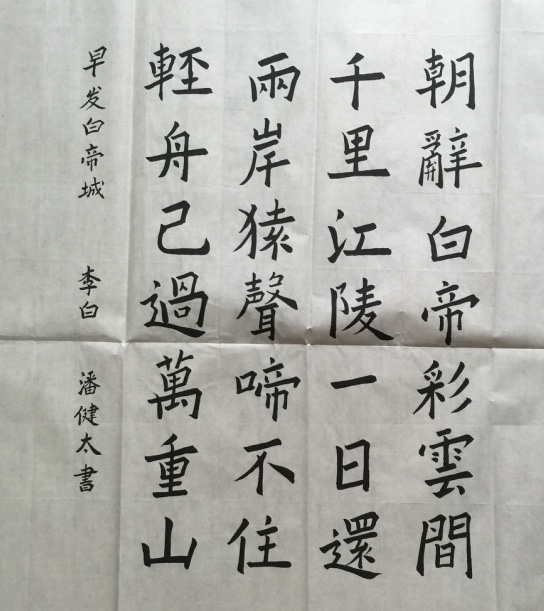 朝辭白帝彩雲間
千里江陵一日還
兩岸猿聲啼不住
輕舟己過萬重山
早发白帝城 李白 潘健太書